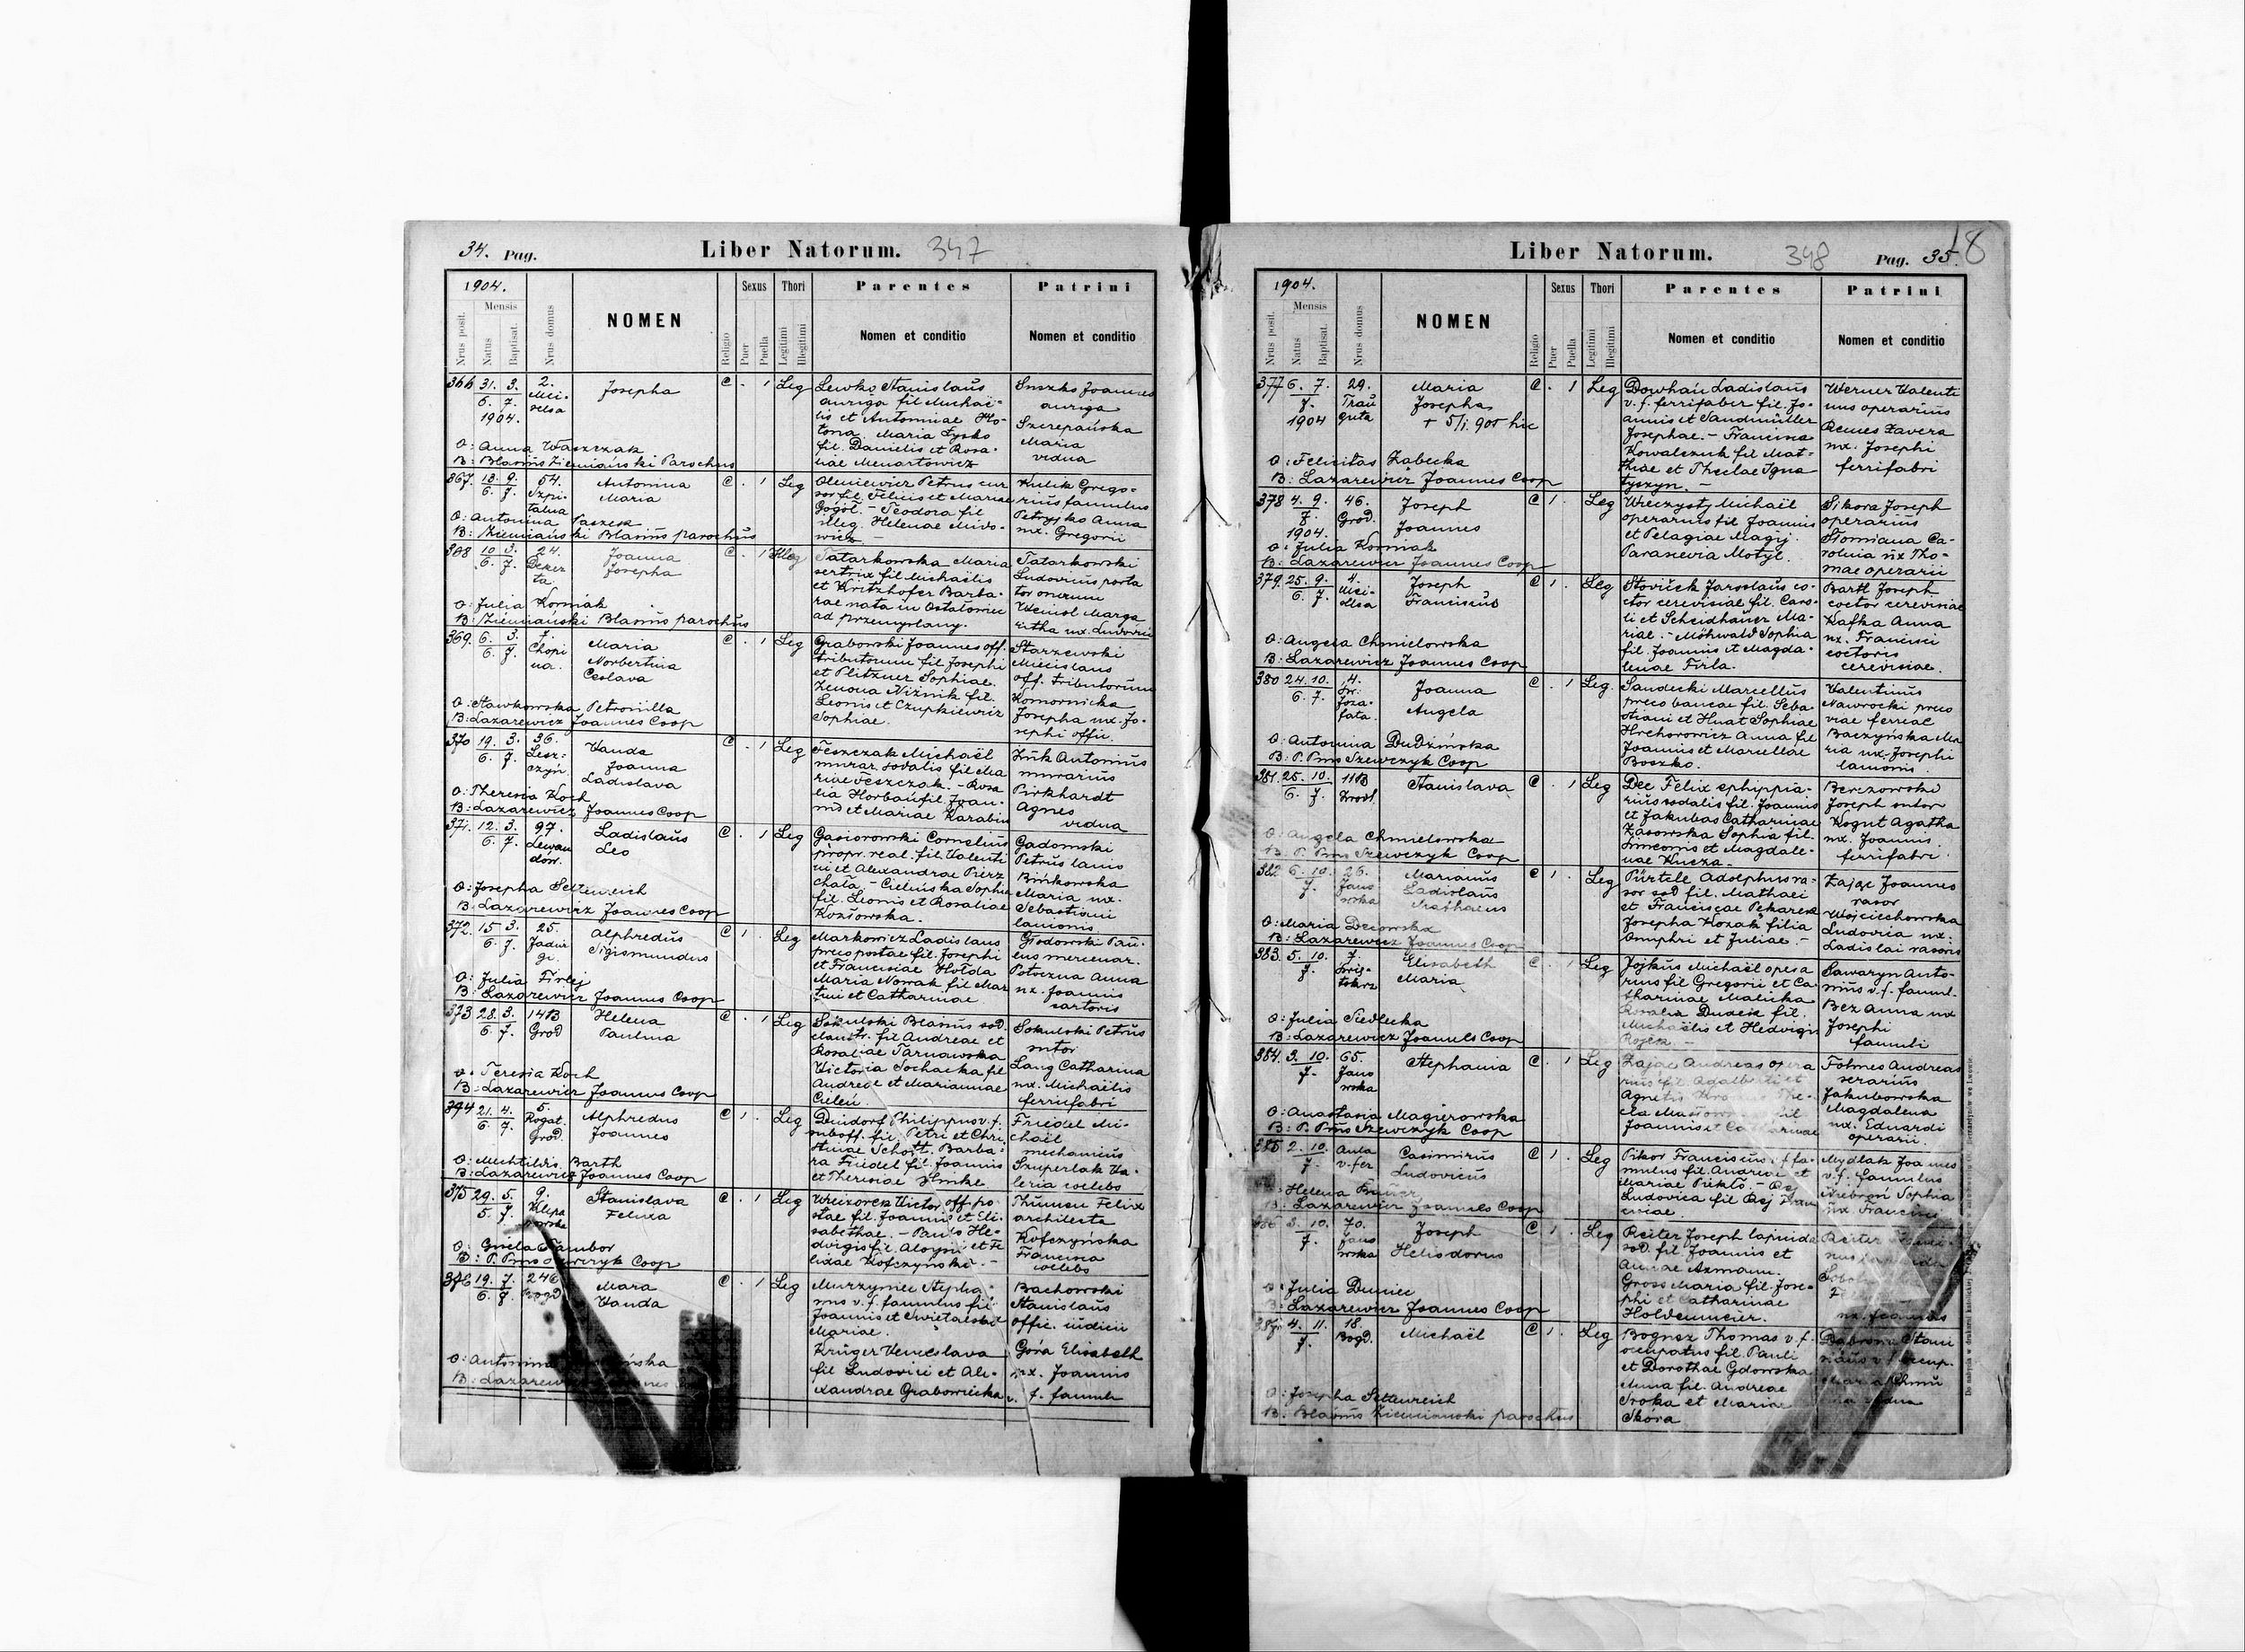 34. Pag.
Liber Natorum. 347
1904.
Mensis
Nrus posit.
Natus
Baptisat.
Nrus domus
NOMEN
Religio
Sexus
Puer
Puella
Thori
Legitimi
Illegitimi
Parentes
Nomen et conditio
Patrini
Nomen et conditio
366 31. 3. 2. Josepha C . 1 Leg
6. 7.
1904.
Lewko Stanislaus
auriga fil Michaë-
lis et Antoninae
Maria Łysko
fil. Danielis et Rosa-
liae Menartowicz
Suszko Joannes
auriga
Szczepańska
Maria
vidua
O: Anna Waszczak
B: Blasius Ziemiański Parochus
367. 13. 9. 54. Antonina C . 1 Leg
6. 7. Szpi- Maria
talna
Oleniewicz Petrus cur
sor fil. Felicis et Mariae
Gogol. - Teodora fil
illeg. Helenae Mido-
wicz. -
Kulik Grego-
rius famulus
Petryszko Anna
ux. Gregorii
O: Antonina Paszek
B: Ziemiański Blasius parochus
368 10 3. 24. Joanna C . 1 Illeg
6. 7. Deker Josepha
ta.
Tatarkowska Maria
sertrix fil Michaëlis
et Kritzhofer Barba-
rae nata in Ostałowice
ad Przemyslany.
Tatarkowski
Ludovicus porta
tor onerum
Weinol Marga
ritha ux. Ludovici
O: Julia Korniak
B: Ziemiański Blasius parochus
369. 6. 3. 7. Maria C . 1 Leg
6. 7. Chopi Norbertina
na. Ceslava
Grabowski Joannes off.
tributorum fil Josephi
et Plitzner Sophiae.
Zenona Niżnik fil.
Leonis et Czupkiewicz
Sophiae.
Starzewski
Miecislaus
off. tributorum
Komornicka
Josepha ux. Jo-
sephi offic.
O: Sławkowska Petronilla
B: Lazarewicz Joannes Coop
370 19. 3. 36. Vanda C . 1 Leg
6. 7. Lesz- Joanna
czyń. Ladislava
Feszczak Michaël
murar. sodalis fil Ma
riae Feszczak. - Rosa
lia Horbań fil. Joan-
nis et Mariae Karabin
Żuk Antonius
murarius
Pirkhardt
Agnes
vidua
O: Theresia Koch
B: Lazarewicz Joannes Coop
371. 12. 3. 97. Ladislaus C . 1 Leg
6. 7. Lewan Leo
dow.
Gasiorowski Cornelius
propr. real. fil. Valenti
ni et Alexandrae Pierz
chała. - Cieleńska Sophia
fil. Leonis et Rosaliae
Kozłowska.
Gadomski
Petrus lanio
Bińkowska
Maria ux.
Sebastiani
lanionis
O: Josepha Settenreich
B: Lazarewicz Joannes Coop
372. 15 3. 25. Alphredus C 1. Leg
6. 7. Jadwi Sigismundus
gi.
Markowicz Ladislaus
preco postae fil. Josephi
et Franciscae Hołda
Maria Nowak fil Mar
tini et Catharinae.
Głodowski Pau-
lus mercenar.
Potoczna Anna
ux. Joannis
sartoris
O: Julia Firlej
B: Lazarewicz Joannes Coop
373 28. 3. 141B Helena C . 1 Leg
6. 7. Grod Paulina
Sokulski Blasius sod.
claustr. fil Andreae et
Rosaliae Tarnawska
Victoria Sochacka fil
Andreae et Mariannae
Cieleń.
Sokulski Petrus
sutor
Lang Catharina
ux. Michaëlis
ferrifabri
O: Teresia Koch
B: Lazarewicz Joannes Coop
394 21. 4. 5. Alphredus C 1. Leg
6. 7. Rogat. Joannes
Grod.
Deindorf Philippus v. f.
suboff. fil. Petri et Chri
stinae Schott. Barba-
ra Friedel fil. Joannis
et Theresiae Hmke
Friedel Mi-
chaël
mechanicus
Szuperlak Va-
leria coelebs
O: Mechtildis Barth
B: Lazarewicz Joannes Coop
375 29. 5. 9. Stanislava C . 1 Leg
5. 7. Klepa Felixa
rowska
Wieizorek Victor off. po-
stae fil. Joannis et Eli-
sabethae. - Pauls He-
dvigis fil. Aloysii et Fe
lixae Kofczyński. -
Thumen Felix
architecta
Kofczyńska
Francisca
coelebs
O: Gisela Sambor
B: P. Pius Szewczyk Coop
376 19. 7. 246 Mara C . 1 Leg
6. 8. Vanda
Murzyniec Stepha
nus v. f. famulus fil
Joannis et
Mariae.
Krüger Venceslava
fil Ludovici et Ale-
xandrae Grabowiecka
Bachowski
Stanislaus
offic. iudicii
Góra Elisabeth
ux. Joannis
v. f. famuli
O: Antonina
B: Lazarew
Liber Natorum. 348 Pag. 35. 18
1904.
Mensis
Nrus posit.
Natus
Baptisat.
Nrus domus
NOMEN
Religio
Sexus
Puer
Puella
Thori
Legitimi
Illegitimi
Parentes
Nomen et conditio
Patrini
Nomen et conditio
377 6. 7. 29. Maria C . 1 Leg
7. Trau Josepha
1904 guta + 5/I. 905 hic
Dowhań Ladislaus
v. f. ferrifaber fil. Jo-
annis et Sandmüller
Josephae. - Francisca
Kowalczuk fil Mat-
thiae et Theclae Igna
tyszyn. -
Werner Valenti
nus operarius
Remes Xavera
ux. Josephi
ferrifabri
O: Felicitas Żabecka
B: Lazarewicz Joannes Coop
378 4. 9. 46. Joseph C 1. Leg
7. Grod. Joannes
1904.
Wreczystyj Michaël
operarius fil Joannis
et Pelagiae Magij.
Parascevia Motyl.
Sikora Joseph
operarius
Słomiana Ca-
rolina ux Tho-
mae operarii
O: Julia Korniak
B: Lazarewicz Joannes Coop
379. 25. 9. 4. Joseph C 1. Leg
6. 7. Franciscus
Stoviček Jaroslaus co-
ctor cerevisiae fil. Caro-
li et Scheidhauer Ma-
riae. - Möhwald Sophia
fil. Joannis et Magda-
lenae Firla.
Bartl Joseph
coctor cerevisiae
Kafka Anna
ux. Francisci
coctoris
cerevisiae.
O: Angela Chmielowska
B: Lazarewicz Joannes Coop
380 24. 10. 4. Joanna C . 1 Leg.
6. 7. św. Angela
Joza-
fata.
Sandecki Marcellus
preco bancae fil. Seba-
stiani et Huat Sophiae
Hrehorowicz Anna fil
Joannis et Marcellae
Boszko.
Valentinus
Nawrocki preco
viae ferreae
Baczyńska Ma
ria ux. Josephi
lanionis.
O: Antonina Dudzińska
B: P. Pius Szewczyk Coop
381. 25. 10. 11B Stanislava C . 1 Leg
6. 7.
Dec Felix ephippia-
rius sodalis fil. Joannis
et Jakubas Catharinae
Żasowska Sophia fil.
Simeonis et Magdale-
nae Kucza -
Berezowski
Joseph sutor
Kogut Agatha
ux. Joannis
ferrifabri
O: Angela Chmielowska
B. P. Pius Szewczyk Coop
382 6. 10. 26. Marianus C 1. Leg
7. Jano Ladislaus
wska Mathaeus
Pürtele Adolphus ra-
sor sod fil. Mathaei
et Franciscae Pekarek
Josepha Kozak filia
Onuphri et Juliae. -
Zając Joannes
rasor
Wojciechowska
Ludovica ux.
Ladislai rasoris
O: Maria
B: Lazarewicz Joannes Coop
383. 5. 10. 7. Elisabeth C . 1 Leg
7. Maria
Jojkus Michaël opera
rius fil Gregorii et Ca
tharinae Malicka
Rosalia Dudek fil.
Michaëlis et Hedvigis
Rojek -
Sawaryn Anto-
nius v. f. famul.
Bez Anna ux
Josephi
famuli
O: Julia Siedlecka
B: Lazarewicz Joannes Coop
384. 3. 10. 65. Stephania C . 1 Leg
7. Jano
wska
Zając Andreas opera
rius fil. Adalberti et
Agnetis
Joannis et Catharinae
Fohnes Andreas
serarius
Jakubowska
Magdalena
ux. Eduardi
operarii.
O: Anastasia Magierowska
B: P. Pius Szewczyk Coop
385 2. 10. Aula Casimirus C 1. Leg
7. v. fer Ludovicus
Pikor Franciscus v. f. fa-
mulus fil. Andreae et
Mariae
Ludovica fil
Mydlak Joannes
v. f. famulus
Sophia
ux. Francisci
Helena
B. Lazarewicz Joannes Coop
386 3. 10. 70. Joseph C 1. Leg
7. Jano Heliodorus
wska
Reiter Joseph lapicida
sod. fil Joannis et
Annae Axmann.
Gross Maria fil Jose-
phi et Catharinae
Holdenmeier.
Reiter
ux. Joannis
O: Julia Duniec
B: Lazarewicz Joannes Coop
387 4. 11. 18. Michaël C 1. Leg
7. Bogd.
Bognez Thomas v. f.
occupatus fil. Pauli
et Dorothae Gdowska
Anna fil. Andreae
Sroka et Mariae
Skora
Dąbrowa Stani
slaus v. f. occup.
O: Josepha Settenreich
B. Blasius Ziemianski parochus